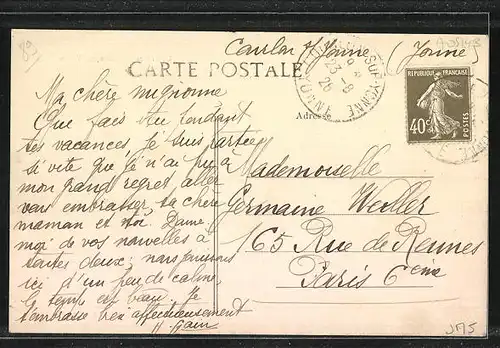 Coulon s/ Yonne (Yonne)
CARTE POSTALE
REPUBLIQUE FRANÇAISE
40c
POSTES
SUR YONNE
23 -8
Adresse
Ma chère mignonne
Que fais-tu pendant
tes vacances, je suis partie
si vite que je n'ai pu à
mon grand regret aller
vous embrasser ta chère
maman et toi. Donne
moi de vos nouvelles à
toutes deux; nous jouissons
ici d'un peu de calme,
le temps est beau. Je
t'embrasse bien affectueusement
Mademoiselle
Germaine Weiller
165 Rue de Rennes
Paris 6eme